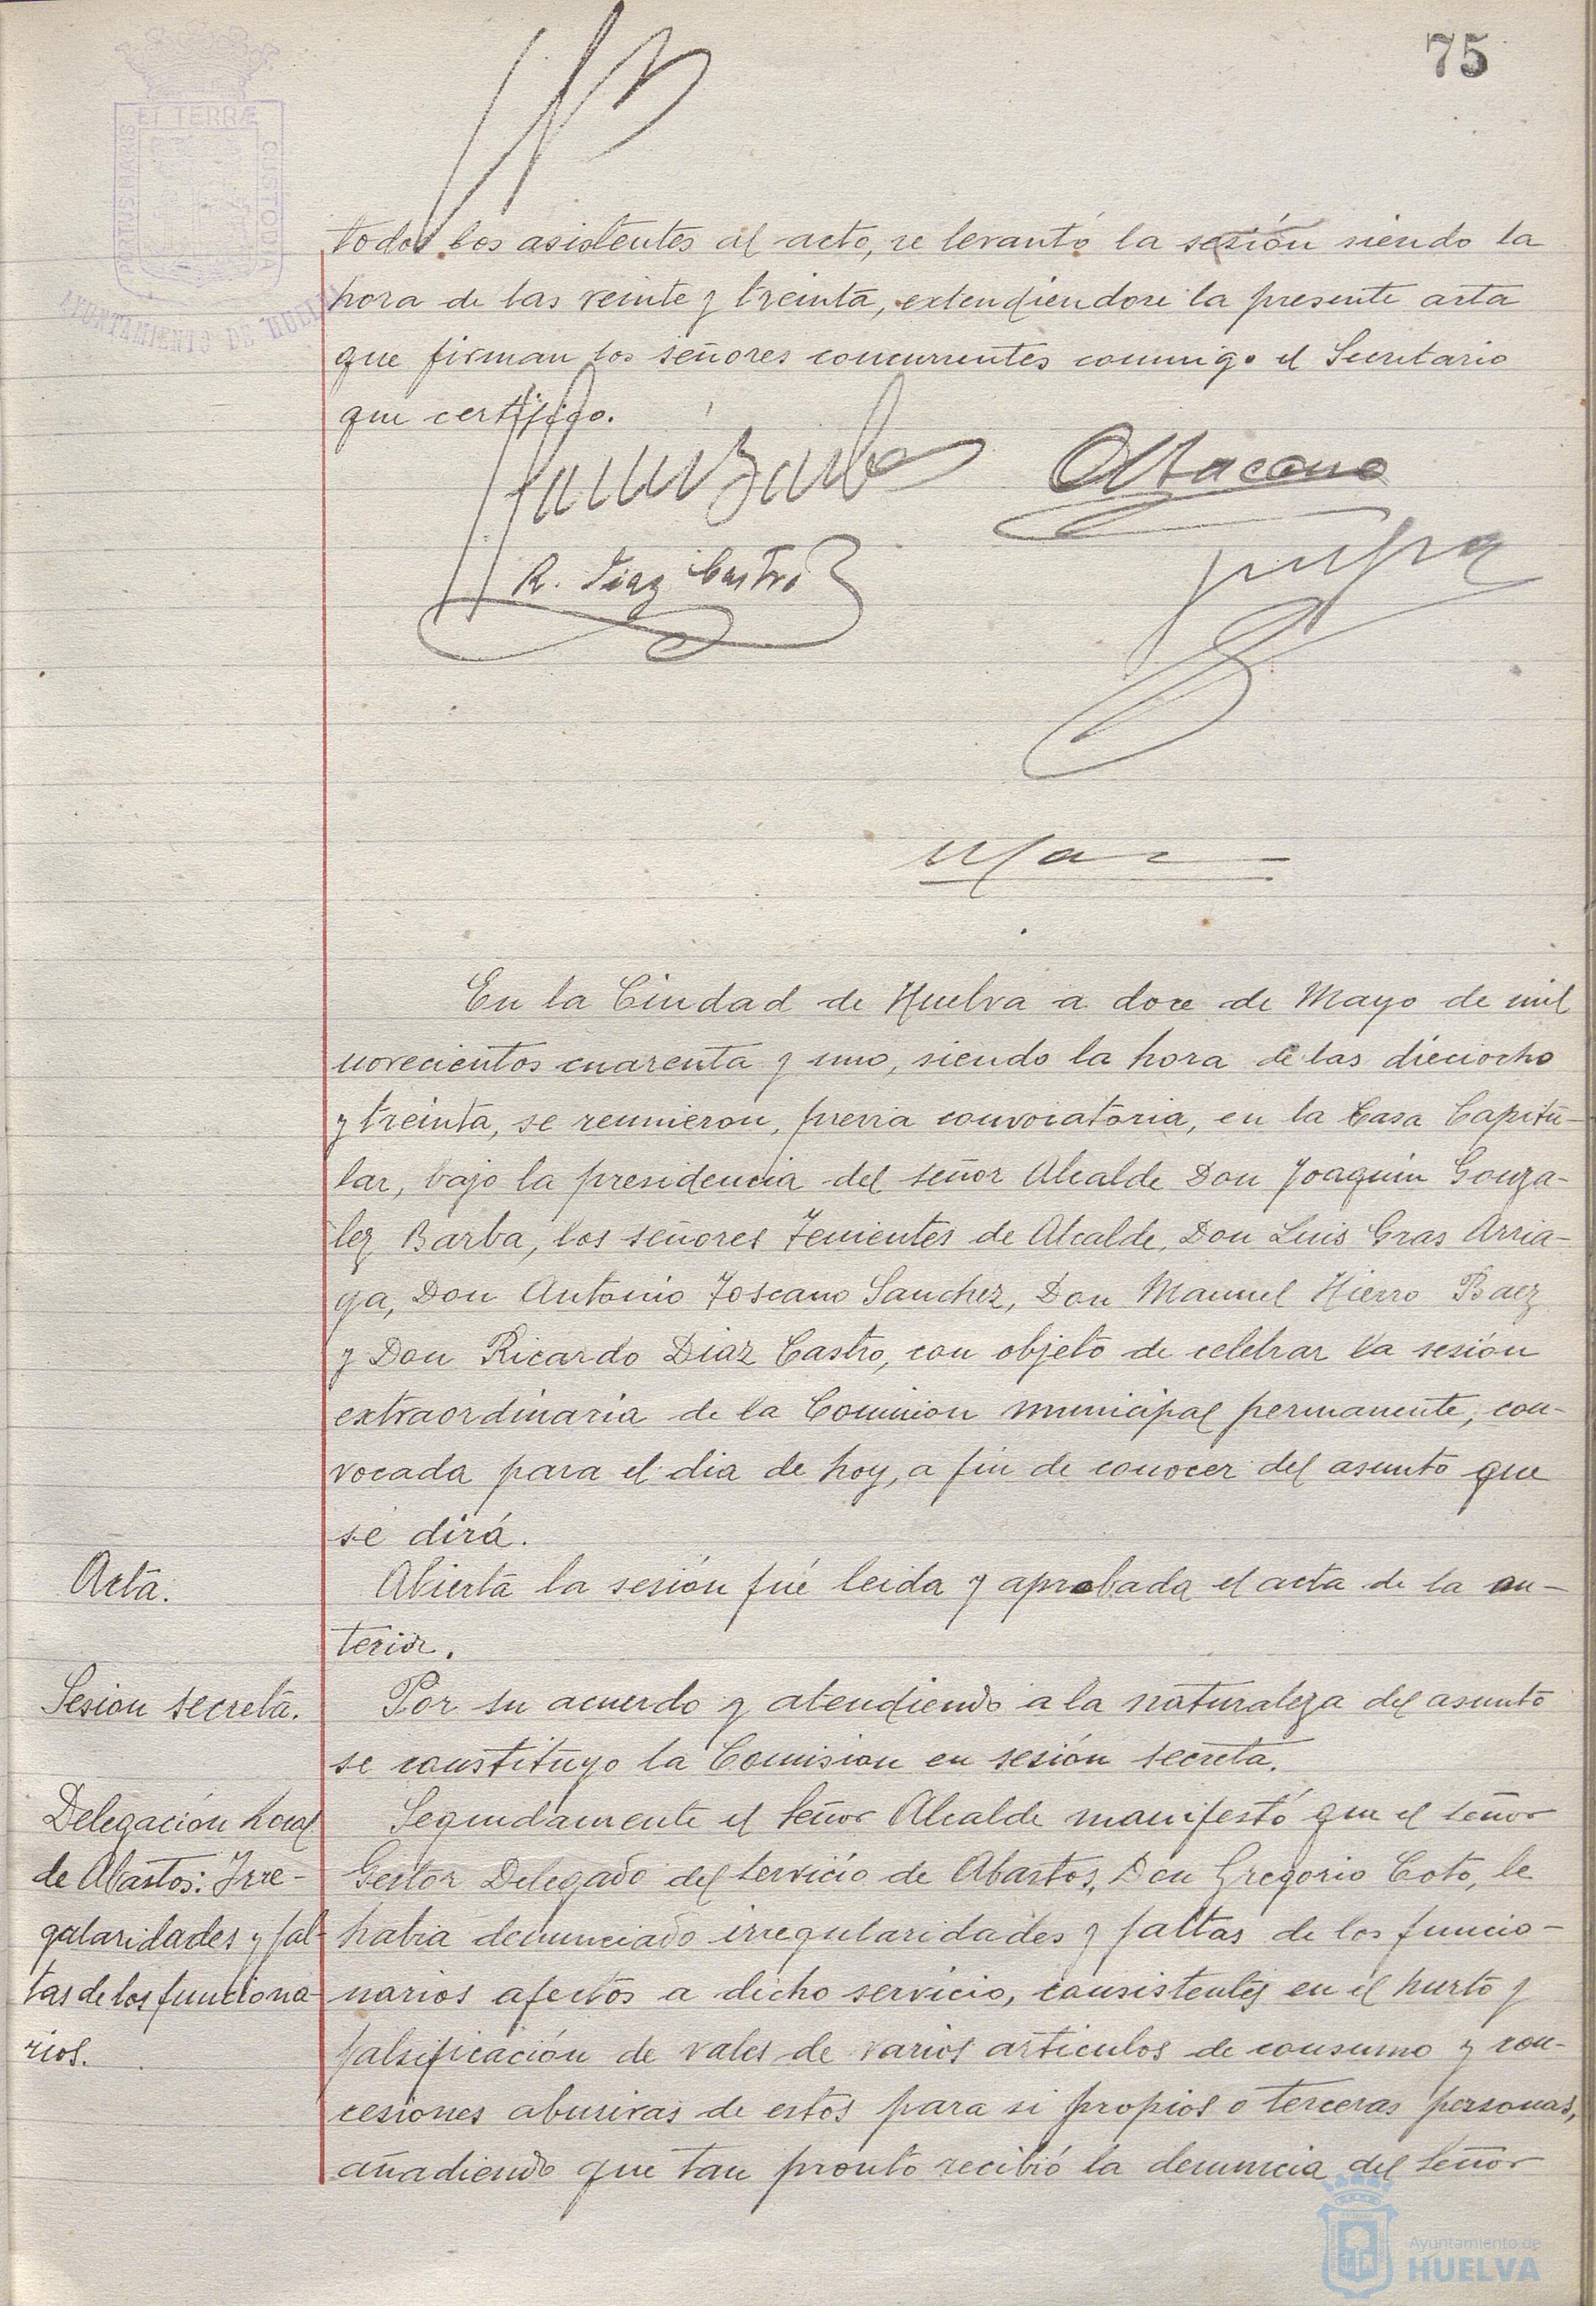 75
PORTUS MARIS
ET TERRÆ
CUSTODIA
AYUNTAMIENTO DE HUELVA
todos los asistentes al acto, se levantó la sesión siendo la
hora de las veinte y treinta, extendiendose la presente acta
que firman los señores concurrentes conmigo el Secretario
que certifico.
R. Diaz Castro
En la Ciudad de Huelva a doce de Mayo de mil
novecientos cuarenta y uno, siendo la hora de las dieciocho
y treinta, se reunieron, previa convocatoria, en la Casa Capitu-
lar, bajo la presidencia del señor Alcalde Don Joaquin Gonza-
lez Barba, los señores Tenientes de Alcalde, Don Luis Gras Arria-
ga, Don Antonio Toscano Sanchez, Don Manuel Hierro Baez
y Don Ricardo Diaz Castro, con objeto de celebrar la sesión
extraordinaria de la Comision municipal permanente, con-
vocada para el dia de hoy, a fin de conocer del asunto que
se dirá.
Acta.
Abierta la sesión fué leida y aprobada el acta de la an-
terior.
Sesion secreta.
Por su acuerdo y atendiendo a la naturaleza del asunto
se constituyo la Comision en sesión secreta.
Delegación Local
de Abastos: Irre-
gularidades y fal-
tas de los funciona-
rios.
Seguidamente el Señor Alcalde manifestó que el señor
Gestor Delegado del servicio de Abastos, Don Gregorio Coto, le
habia denunciado irregularidades y faltas de los funcio-
narios afectos a dicho servicio, consistentes en el hurto y
falsificación de vales de varios articulos de consumo y con-
cesiones abusivas de estos para si propios o terceras personas,
añadiendo que tan pronto recibió la denuncia del Señor
Ayuntamiento de
HUELVA